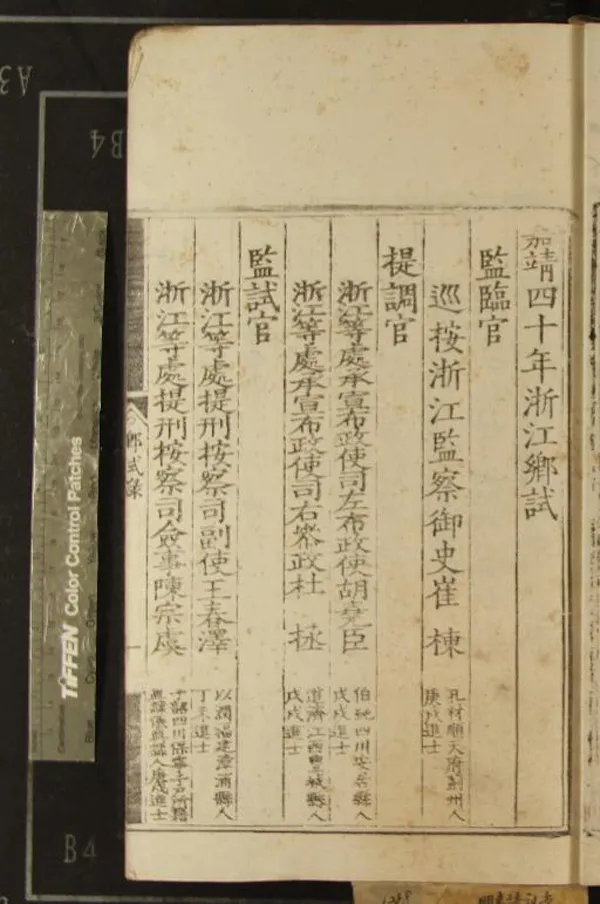 嘉靖四十年浙江鄉試
監臨官
巡按浙江監察御史崔棟
孔材順天府薊州人
庚戌進士
提調官
浙江等處承宣布政使司左布政使胡堯臣
伯純四川安岳縣人
戊戌進士
浙江等處承宣布政使司右叅政杜拯
道濟江西豐城縣人
戊戌進士
監試官
浙江等處提刑按察司副使王春澤
以潤福建漳浦縣人
丁未進士
浙江等處提刑按察司僉事陳宗虞
四川保寧千戶所籍
縣人庚戌進士
鄉試錄
一
TIFFEN Color Control Patches
A3
B4
B4